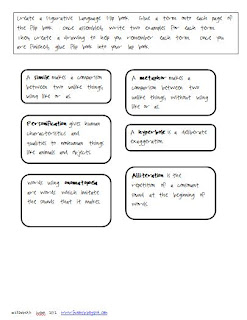 Create a figurative language flip book. Glue a term onto each page of
the flip book. Once assembled, write two examples for each term.
Then create a drawing to help you remember each term. Once you
are finished, glue flip book into your lap book.
A simile makes a comparison
between two unlike things,
using like or as.
A metaphor makes a
comparison between two
unlike things, without using
like or as.
Personification gives human
characteristics and
qualities to nonhuman things
like animals and objects.
A hyperbole is a deliberate
exaggeration.
Words using onomatopoeia
are words that imitate
the sounds that it makes.
Alliteration is the
repetition of a consonant
sound at the beginning
of words.